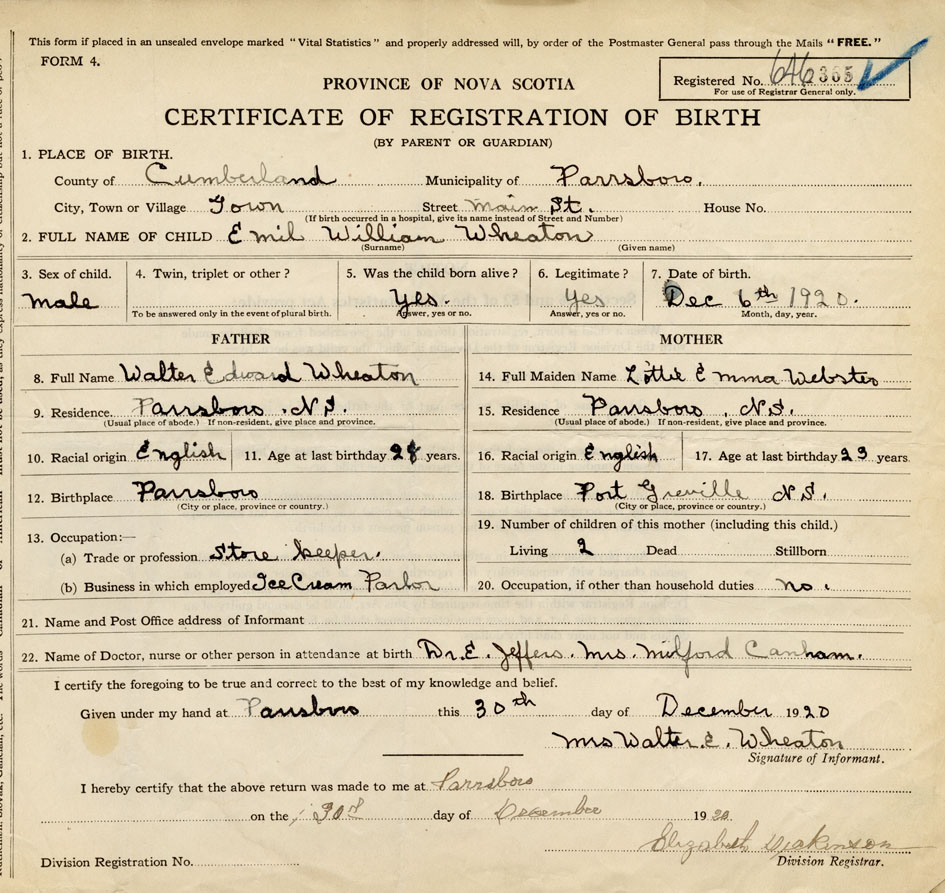 This form if placed in an unsealed envelope marked "Vital Statistics" and properly addressed will, by order of the Postmaster General pass through the Mails "FREE."
FORM 4.
Registered No. 646365
For use of Registrar General only.
PROVINCE OF NOVA SCOTIA
CERTIFICATE OF REGISTRATION OF BIRTH
(BY PARENT OR GUARDIAN)
1. PLACE OF BIRTH.
County of Cumberland Municipality of Parrsboro.
City, Town or Village Town Street Main St. House No.
(If birth occurred in a hospital, give its name instead of Street and Number)
2. FULL NAME OF CHILD Emil William Wheaton
(Surname) (Given name)
3. Sex of child. 4. Twin, triplet or other? 5. Was the child born alive? 6. Legitimate? 7. Date of birth.
male Yes. Yes Dec 6th 1920.
To be answered only in the event of plural birth. Answer, yes or no. Answer, yes or no. Month, day, year.
FATHER MOTHER
8. Full Name Walter Edward Wheaton 14. Full Maiden Name Lottie Emma Webster
9. Residence. Parrsboro . N.S. 15. Residence Parrsboro , N.S.
(Usual place of abode.) If non-resident, give place and province. (Usual place of abode.) If non-resident, give place and province.
10. Racial origin English 11. Age at last birthday 28 years. 16. Racial origin English 17. Age at last birthday 23 years
12. Birthplace Parrsboro 18. Birthplace Port Greville N.S.
(City or place, province or country.) (City or place, province or country.)
13. Occupation:— 19. Number of children of this mother (including this child.)
(a) Trade or profession Store keeper. Living 2 Dead Stillborn
(b) Business in which employed Ice Cream Parlor 20. Occupation, if other than household duties no.
21. Name and Post Office address of Informant
22. Name of Doctor, nurse or other person in attendance at birth Dr. E. Jeffers. Mrs. Milford Canham.
I certify the foregoing to be true and correct to the best of my knowledge and belief.
Given under my hand at Parrsboro this 30th day of December 1920
Mrs Walter. E. Wheaton
Signature of Informant.
I hereby certify that the above return was made to me at Parrsboro
on the 30th day of December 1920.
Elizabeth Dickinson
Division Registration No. Division Registrar.